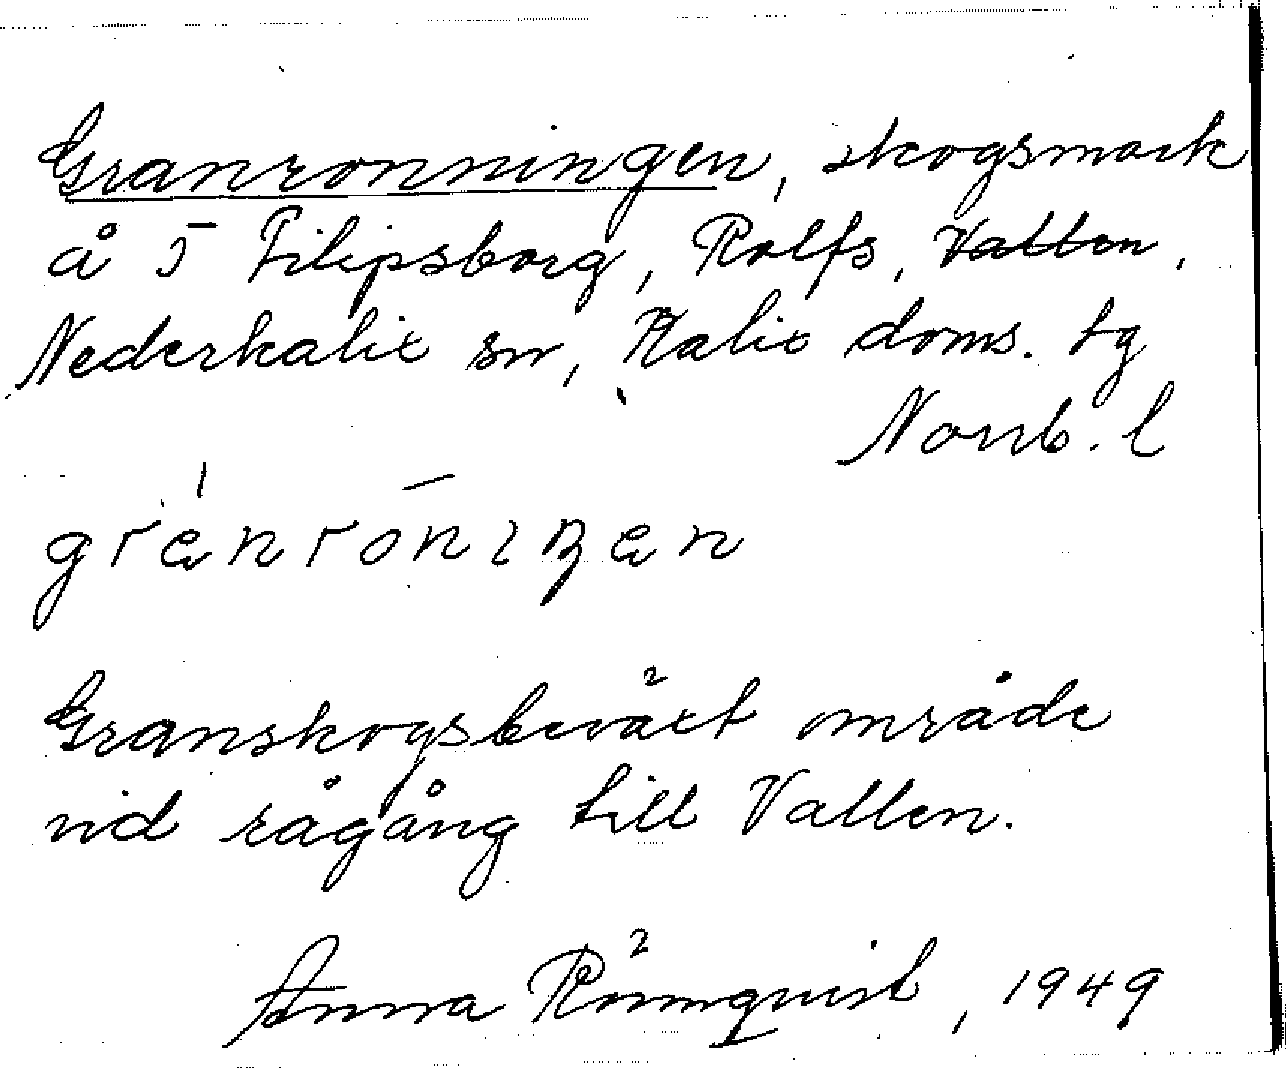 Granronningen, skogsmark
å 5 Filipsborg, Rolfs, Vallen,
Nederkalix sn, Kalix doms. tg
Norrb. l
Granskogsbeväxt område
vid rågång till Vallen.
Anna Römquist, 1949